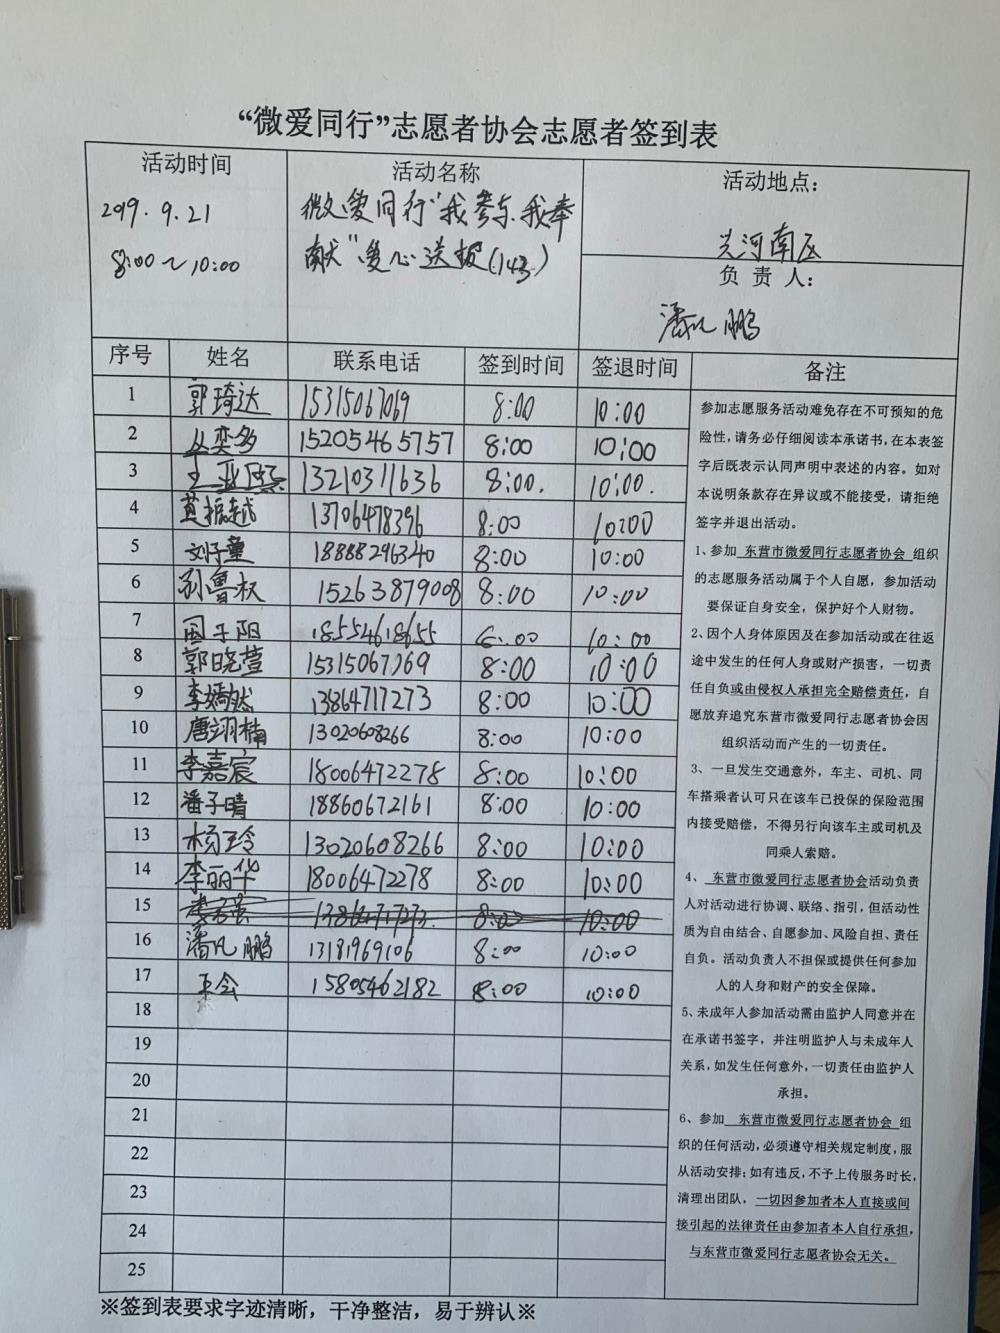 “微爱同行”志愿者协会志愿者签到表
活动时间
2019.9.21
8:00～10:00
活动名称
微爱同行“我参与、我奉
献”爱心送报(143)
活动地点：
兴河南区
负 责 人：
潘凡鹏
序号 姓名 联系电话 签到时间 签退时间 备注
1 郭琦达 15315067069 8:00 10:00
2 丛奕多 15205465757 8:00 10:00
3 13210311636 8:00. 10:00.
4 黄振越 13706478396 8:00 10:00
5 刘子童 18888296340 8:00 10:00
6 孙鲁权 15263879008 8:00 10:00
7 周子阳 18554618655 8:00 10:00
8 郭晓萱 15315067069 8:00 10:00
9 李嫣然 13864717273 8:00 10:00
10 唐翊楠 13020608266 8:00 10:00
11 李嘉宸 18006472278 8:00 10:00
12 潘子晴 18860672161 8:00 10:00
13 杨玉玲 13020608266 8:00 10:00
14 李丽华 18006472278 8:00 10:00
15 13864717273 8:00 10:00
16 潘凡鹏 13181969106 8:00 10:00
17 王会 15805462182 8:00 10:00
18
19
20
21
22
23
24
25
参加志愿服务活动难免存在不可预知的危
险性，请务必仔细阅读本承诺书，在本表签
字后既表示认同声明中表述的内容。如对
本说明条款存在异议或不能接受，请拒绝
签字并退出活动。
1、参加 东营市微爱同行志愿者协会 组织
的志愿服务活动属于个人自愿，参加活动
要保证自身安全，保护好个人财物。
2、因个人身体原因及在参加活动或在往返
途中发生的任何人身或财产损害，一切责
任自负或由侵权人承担完全赔偿责任，自
愿放弃追究东营市微爱同行志愿者协会因
组织活动而产生的一切责任。
3、一旦发生交通意外，车主、司机、同
车搭乘者认可只在该车已投保的保险范围
内接受赔偿，不得另行向该车主或司机及
同乘人索赔。
4、 东营市微爱同行志愿者协会活动负责
人对活动进行协调、联络、指引，但活动性
质为自由结合、自愿参加、风险自担、责任
自负。活动负责人不担保或提供任何参加
人的人身和财产的安全保障。
5、未成年人参加活动需由监护人同意并在
在承诺书签字，并注明监护人与未成年人
关系，如发生任何意外，一切责任由监护人
承担。
6、参加 东营市微爱同行志愿者协会 组
织的任何活动，必须遵守相关规定制度，服
从活动安排；如有违反，不予上传服务时长，
清理出团队，一切因参加者本人直接或间
接引起的法律责任由参加者本人自行承担，
与东营市微爱同行志愿者协会无关。
※签到表要求字迹清晰，干净整洁，易于辨认※